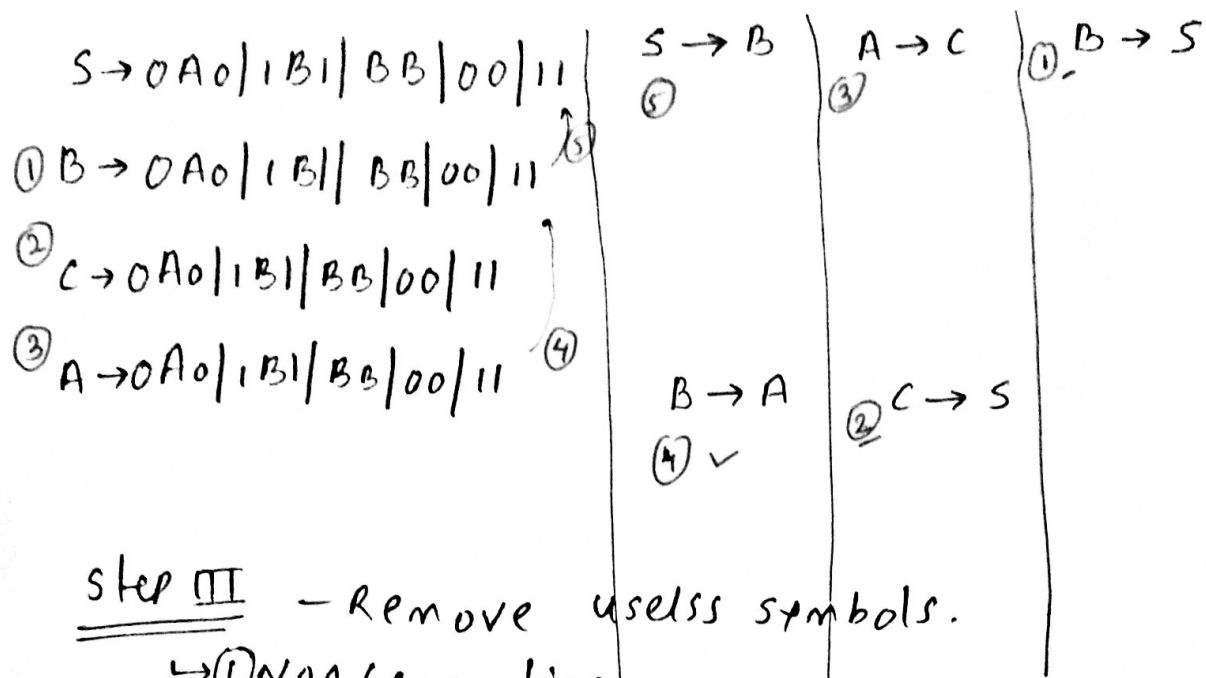 S → 0A0 | 1B1 | BB | 00 | 11
⑤
① B → 0A0 | 1B1 | BB | 00 | 11
② C → 0A0 | 1B1 | BB | 00 | 11
③ A → 0A0 | 1B1 | BB | 00 | 11
④
S → B
⑤
A → C
③
① B → S
B → A
④ ✓
② C → S
Step III - Remove uselss symbols.
↳ ①